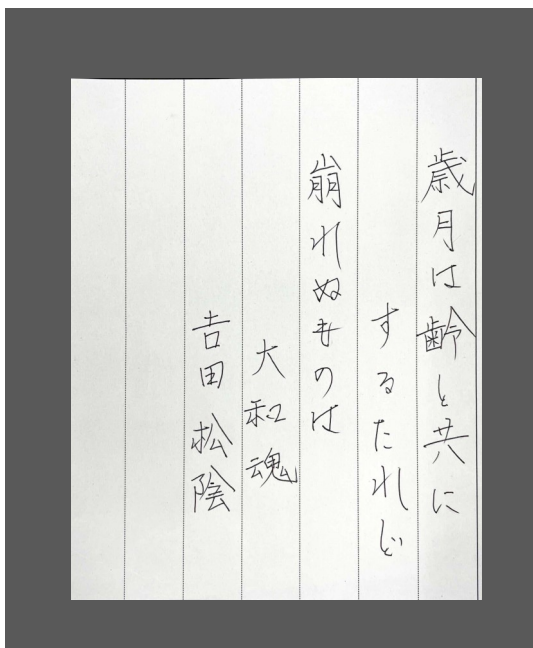 歳月は齢と共に
するたれど
崩れぬものは
大和魂
吉田松陰